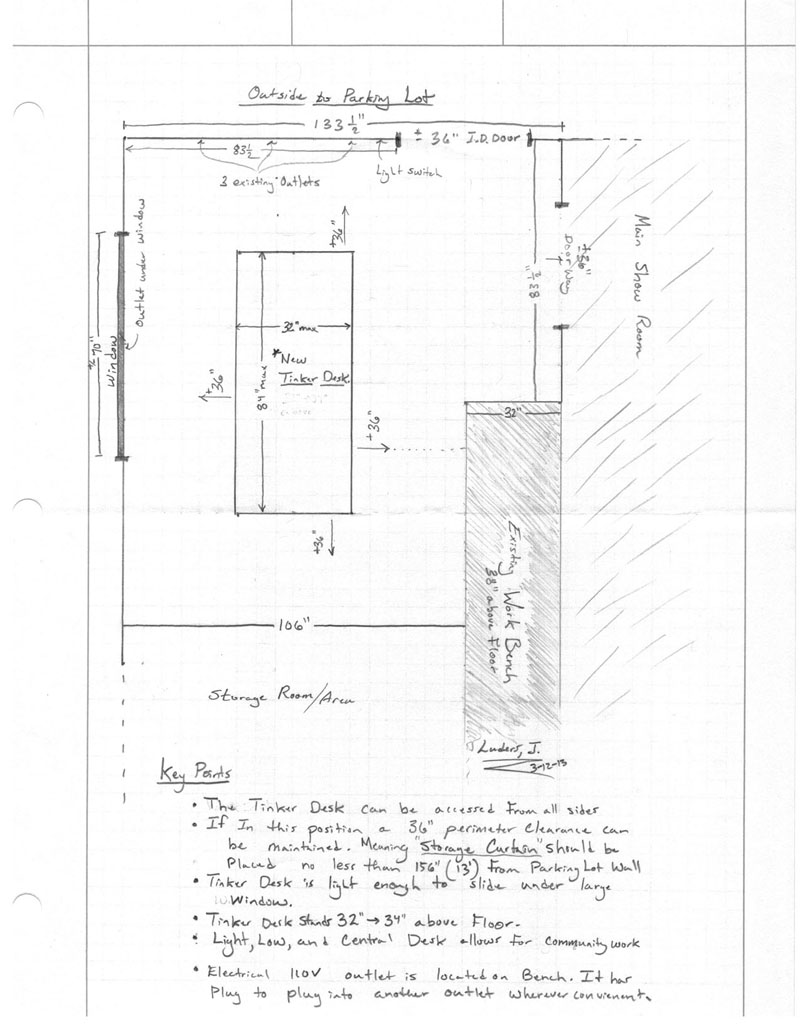 Outside to Parking Lot
133 1/2"
83 1/2
36" I.D. Door
3 existing outlets
Light switch
Outlet under window
Window
70"
±36"
Door Way
Main Show Room
+36"
32" max
84" max
*New
Tinker Desk.
+36"
+36"
+36"
32"
Existing Work Bench
38" above Floor
106"
Storage Room/Area
Luders, J.
3-12-13
Key Points
• The Tinker Desk can be accessed from all sides
• If In this position a 36" perimeter clearance can
be maintained. Meaning "Storage Curtain" should be
Placed no less than 156" (13') from Parking Lot Wall
• Tinker Desk is light enough to slide under large
Window.
• Tinker Desk Stands 32" → 34" above Floor.
• Light, Low, and Central Desk allows for community work
• Electrical 110V outlet is located on Bench. It has
Plug to plug into another outlet wherever convienent.